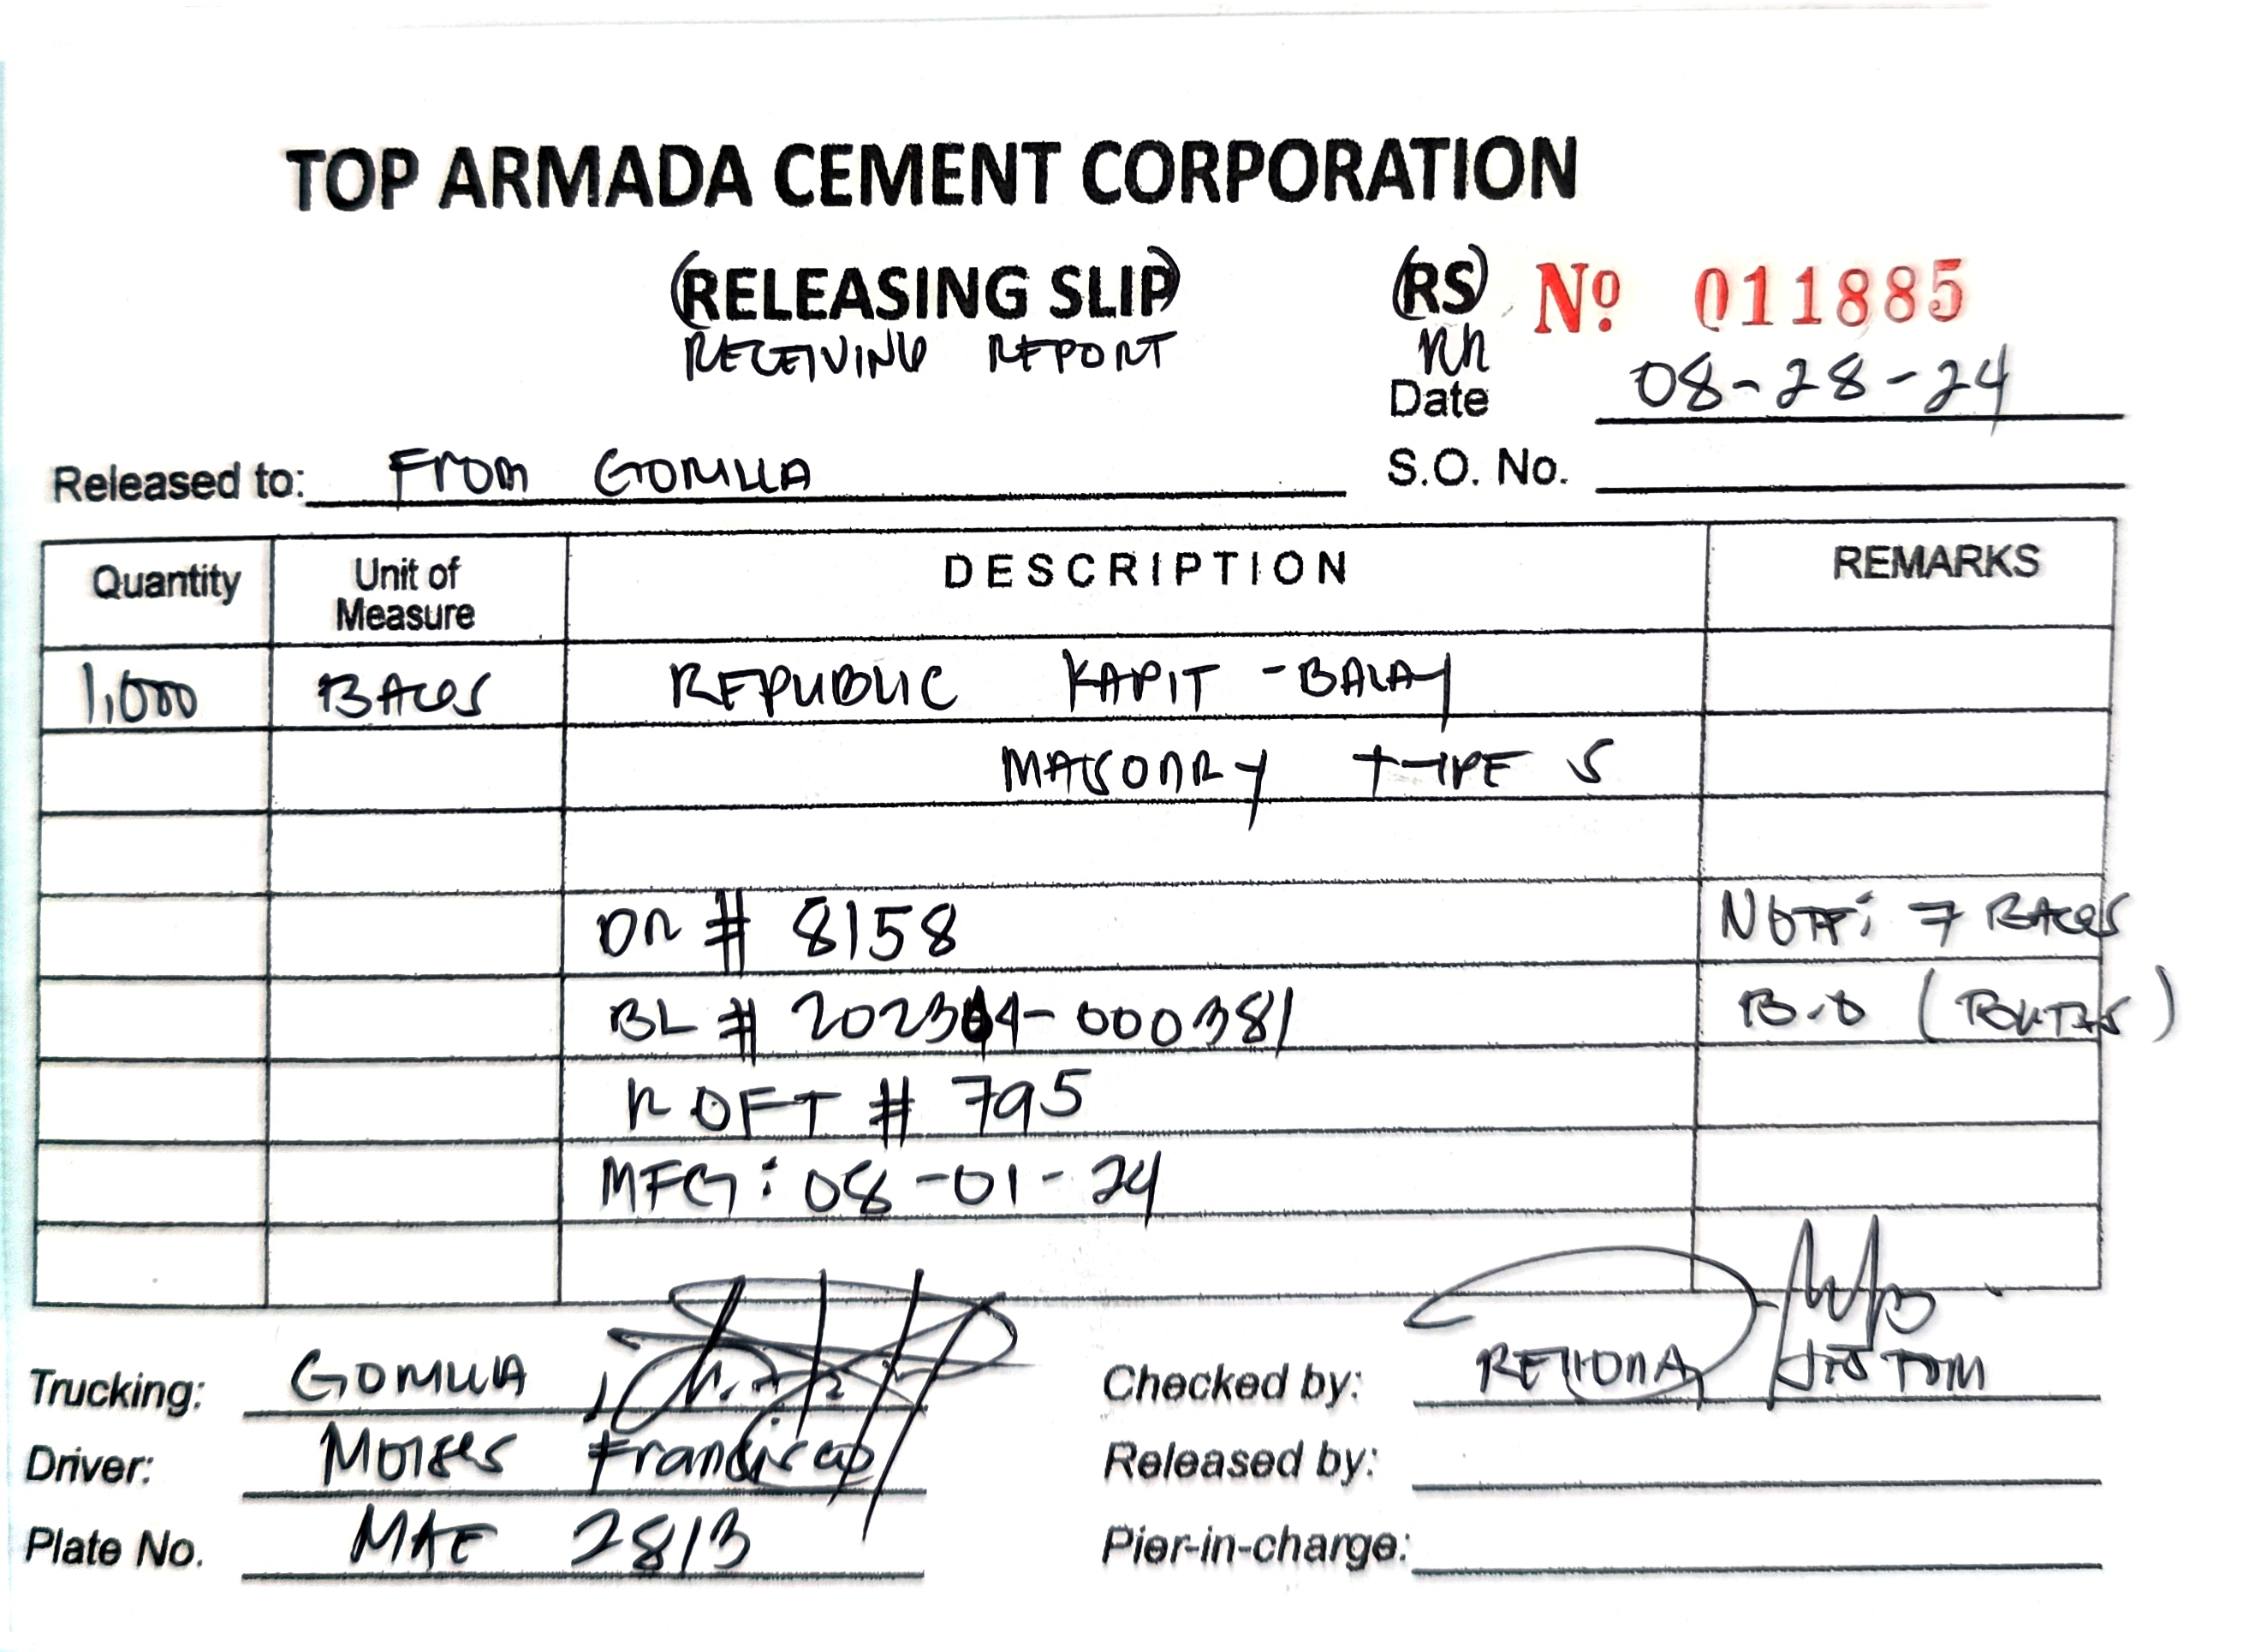 TOP ARMADA CEMENT CORPORATION
(RELEASING SLIP) (RS) Nº 011885
RECEIVING REPORT RR
Date 08-28-24
Released to: FROM GORILLA S.O. No.
Quantity Unit of Measure DESCRIPTION REMARKS
1,000 BAGS REPUBLIC KAPIT-BALAY
MASONRY TYPE S
DR # 8158 NOTE: 7 BAGS
BL # 202304-000381 B.O
ROFT # 795
MFG: 08-01-24
Trucking: GORILLA Checked by: TOM
Driver: MOISES Francisco Released by:
Plate No. MAE 2813 Pier-in-charge: